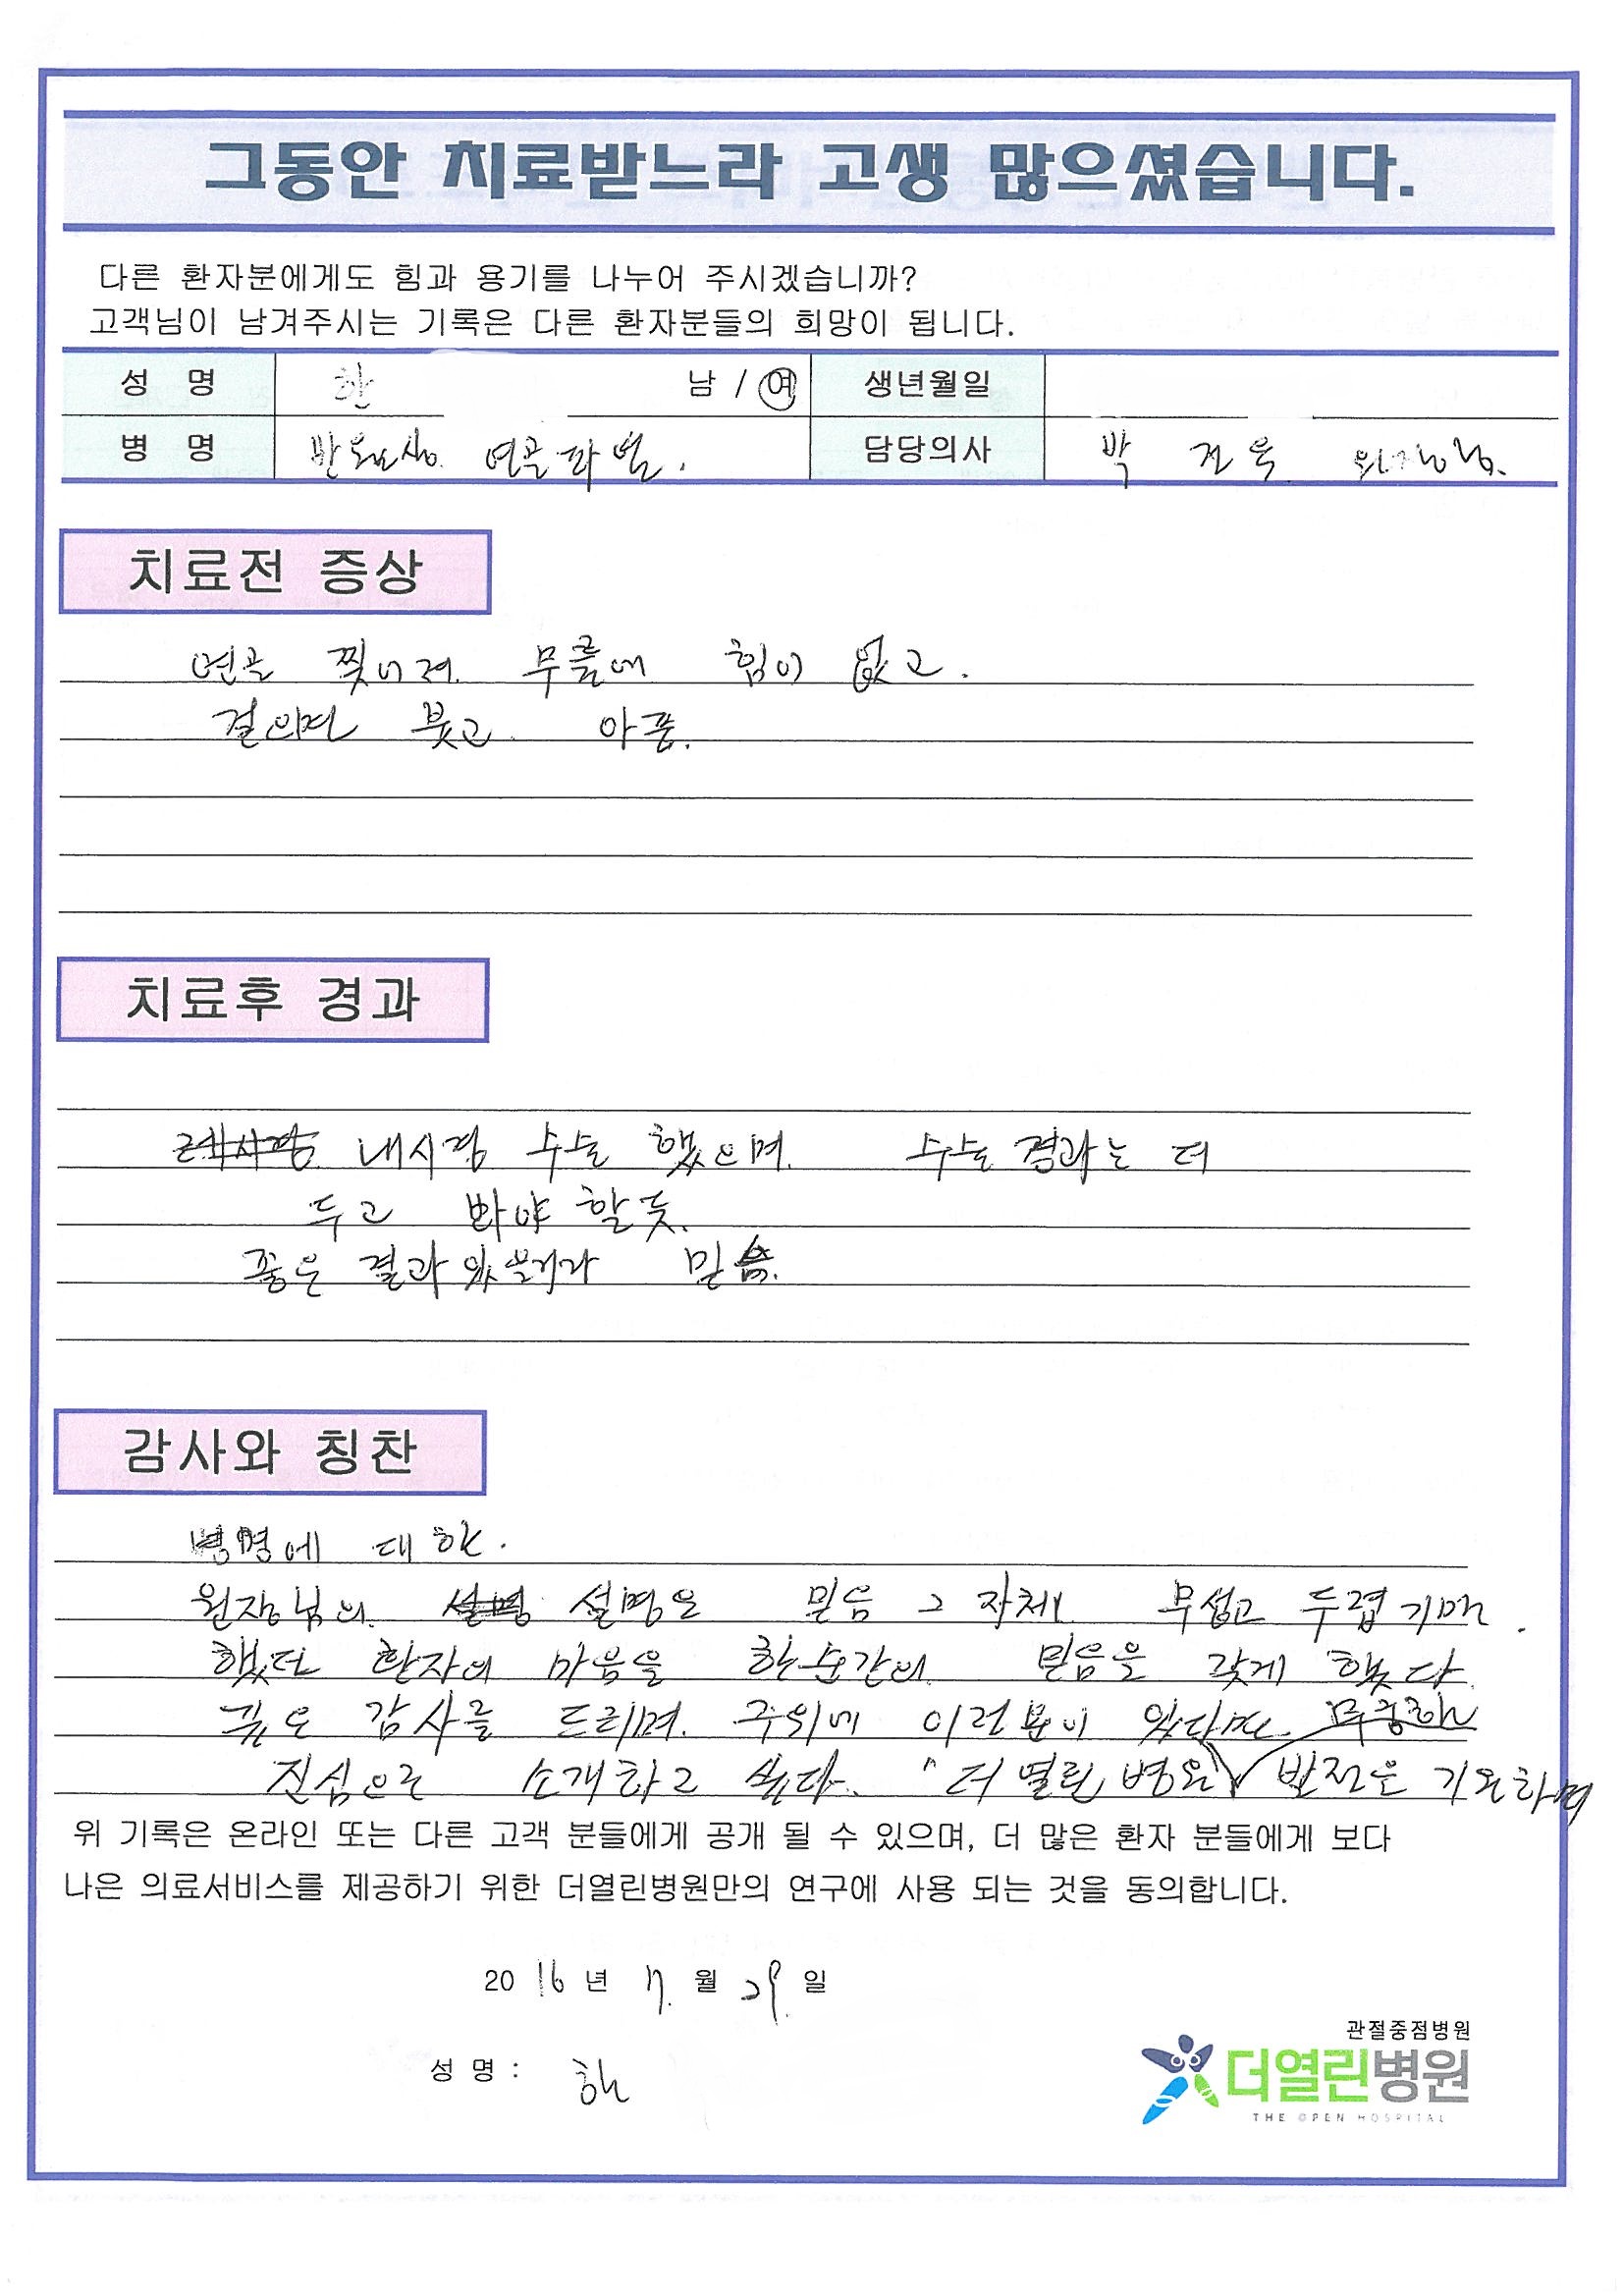 그동안 치료받느라 고생 많으셨습니다.
다른 환자분에게도 힘과 용기를 나누어 주시겠습니까?
고객님이 남겨주시는 기록은 다른 환자분들의 희망이 됩니다.
성 명 한 남 / 여 생년월일
병 명 연골파열. 담당의사 박 진욱 원장님.
치료전 증상
연골 찢어져 무릎에 힘이 없고.
걸으면 붓고 아픔.
치료후 경과
내시경 수술 했으며. 수술 경과는 더
두고 봐야 할듯.
좋은 결과 있을거라 믿음.
감사와 칭찬
병명에 대한.
원장님의 설명 설명은 믿음 그 자체 무섭고 두렵기만.
했던 환자의 마음을 한순간의 믿음을 갖게 했다
감사를 드리며. 주위에 이런분이 있다면
진심으로 소개하고 싶다. "더 열린 병원" 발전을 기원하며
위 기록은 온라인 또는 다른 고객 분들에게 공개 될 수 있으며, 더 많은 환자 분들에게 보다
나은 의료서비스를 제공하기 위한 더열린병원만의 연구에 사용 되는 것을 동의합니다.
2016년 7월 29일
성 명 : 한
관절중점병원
더열린병원
THE OPEN HOSPITAL